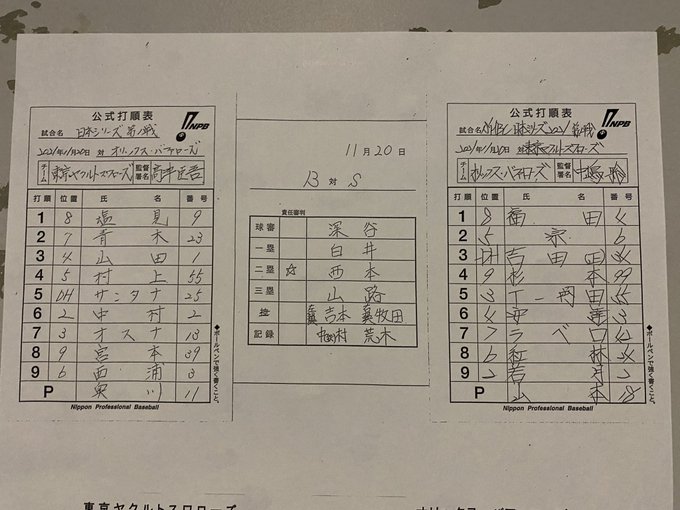 公式打順表
NPB
試合名 日本シリーズ 第1戦
2021年11月20日 対 オリックス・バファローズ
チーム 東京ヤクルトスワローズ 監督署名 高津臣吾
打順 位置 氏 名 番号
1 8 塩見 9
2 7 青木 23
3 4 山田 1
4 5 村上 55
5 DH サンタナ 25
6 2 中村 2
7 3 オスナ 13
8 9 宮本 39
9 6 西浦 3
P 奥川 11
Nippon Professional Baseball
◆ボールペンで強く書くこと。
11月20日
B 対 S
責任審判
球審 深谷
一塁 白井
二塁 ☆ 西本
三塁 山路
控 吉本 牧田
記録 中村 荒木
公式打順表
NPB
試合名 日本シリーズ2021 第1戦
2021年11月20日 対 東京ヤクルトスワローズ
チーム オリックス・バファローズ 監督署名 中嶋
打順 位置 氏 名 番号
1 8 福田
2 5 宗 6
3 DH 吉田正
4 9 杉本 99
5 3 T-岡田 55
6 安達 3
7 7 ラベロ
8 6 紅林
9 2 若月 2
P 山本 18
Nippon Professional Baseball
◆ボールペンで強く書くこと。
東京ヤクルトスワローズ